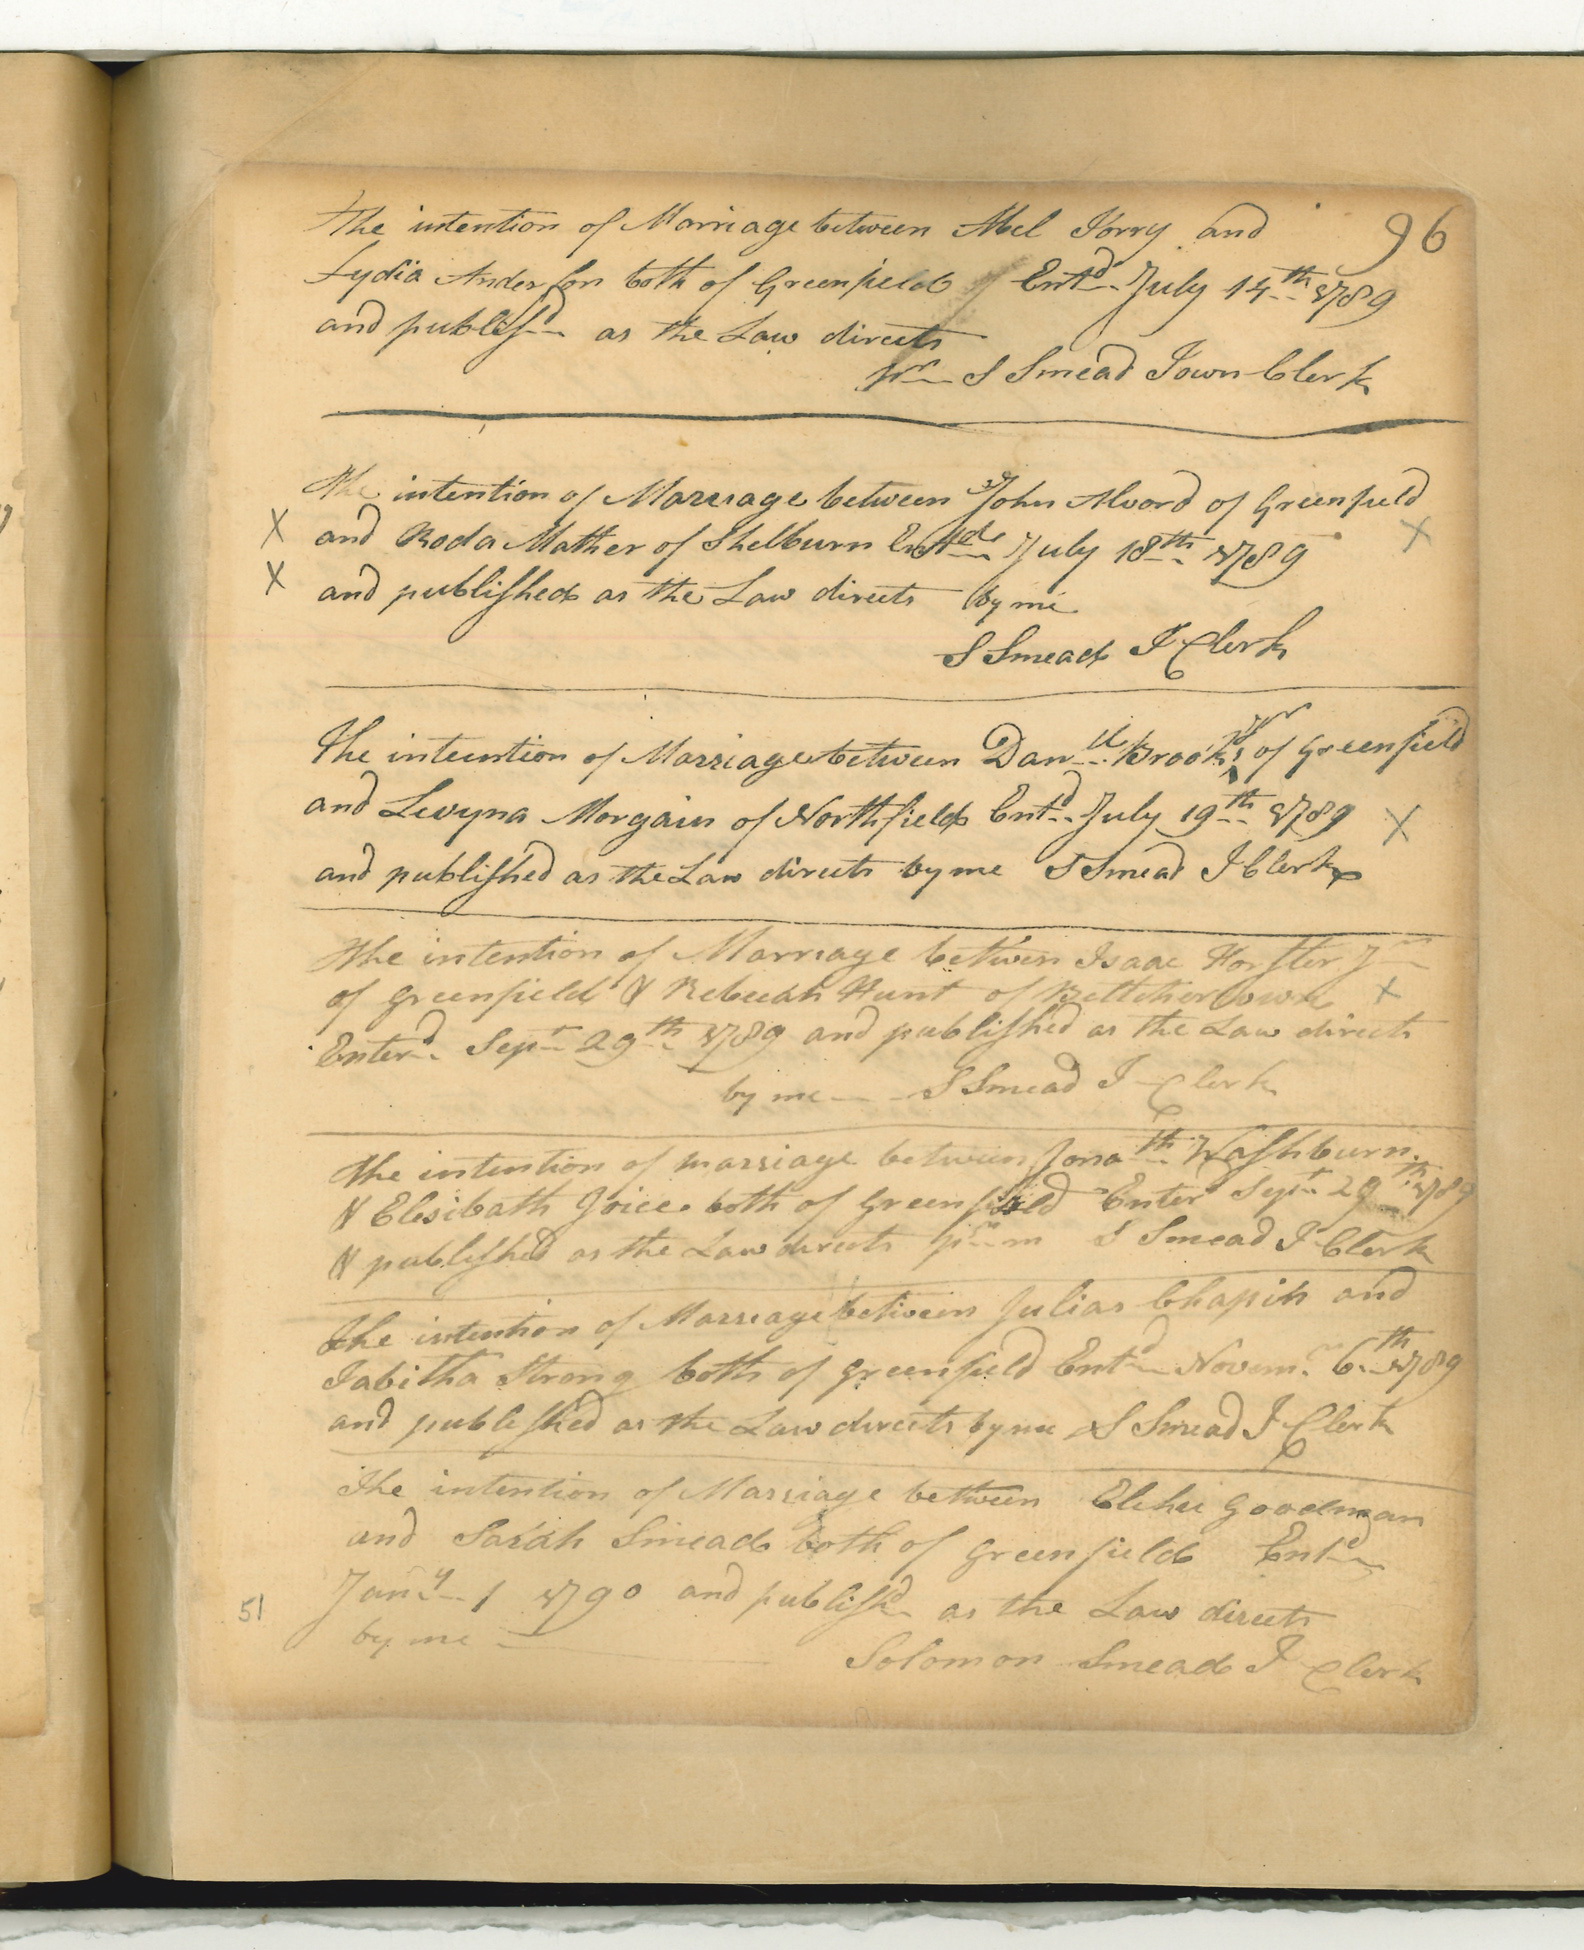 96
The intention of Marriage between Abel Torry and
Lydia Anderson both of Greenfield Entd July 14th 1789
and publisd as the Law directs
pr S Smead Town Clerk
The intention of Marriage between John Alvord of Greenfield
X and Roda Mather of Shelburn Entd July 18th 1789 X
X and published as the Law directs by me
S Smead T Clerk
The intention of Marriage between Danll Brooks Jnr of Greenfield
and Levyna Morgain of Northfield Entd July 19th 1789 X
and published as the Law directs by me S Smead T Clerk
The intention of Marriage between Isaac Forster Jnr
of Greenfield & Rebecah Hunt of X
Enterd Sept 29th 1789 and published as the Law directs
by me S Smead T Clerk
The intention of marriage between Jonath Washburn
& Elesibath Joice both of Greenfield Enterd Sept 29th 1789
& published as the Law directs pr m S Smead T Clerk
The intention of Marriage between Julias Chapin and
Tabitha Strong both of Greenfield Entd Novem 6th 1789
and published as the Law directs by me S Smead T Clerk
The intention of Marriage between Elehu Goodman
and Sarah Smead both of Greenfield Entd
51 Jany 1 1790 and publishd as the Law directs
by me
Solomon Smead T Clerk